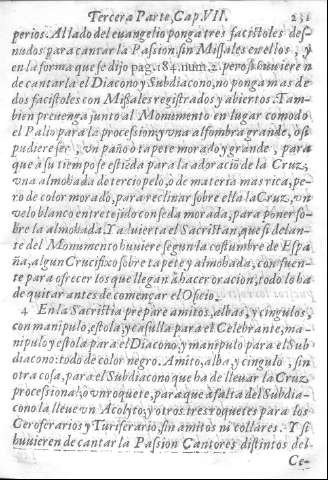 Tercera Parte, Cap. VII. 231
perios. Al lado del euangelio ponga tres facistoles des-
nudos para cantar la Passion, sin Missales en ellos, y
en la forma que se dijo pag. 184. num. 2. pero si huuieren
de cantarla el Diacono y Subdiacono, no ponga mas de
dos facistoles con Missales registrados y abiertos. Tam-
bien preuenga junto al Monumento en lugar comodo
el Palio para la procession; y vna alfombra grande, o si
pudiere ser, vn paño o tapete morado y grande, para
que à su tiempo se estiēda para la adoracio de la Cruz,
vna almohada de terciopelo, ò de materia mas rica, pe-
ro de color morado, para reclinar sobre ella la Cruz, vn
velo blanco entretejido con seda morada, para poner so-
bre la almohada. Y aduierta el Sacristan, que si delan-
te del Monumento huuiere segun la costumbre de Espa-
ña, algun Crucifixo sobre tapete y almohada, con fuen-
te para ofrecer los que llegan à hacer oracion, todo lo ha
de quitar antes de començar el Oficio.
4 En la Sacristia prepare amitos, albas, y cingulos,
con manipulo, estola, y casulla para el Celebrante, ma-
nipulo y estola para el Diacono, y manipulo para el Sub
diacono: todo de color negro. Amito, alba, y cingulo, sin
otra cosa, para el Subdiacono que ha de lleuar la Cruz
processional, ò vn roquete, para que à falta del Subdia-
cono la lleue vn Acolyto; y otros tres roquetes para los
Ceroferarios y Turiferario, sin amitos ni collares. Y si
huuieren de cantar la Passion Cantores distintos del
Ce-